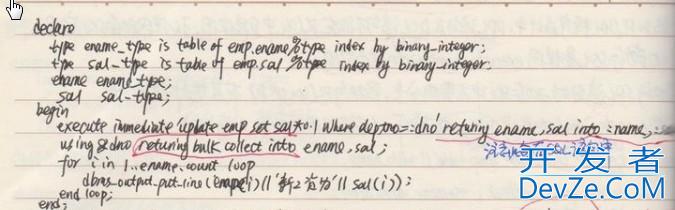 declare
type ename_type is table of emp.ename%type index by binary_integer;
type sal_type is table of emp.sal%type index by binary_integer.
ename ename_type;
sal sal_type;
begin
execute immediate 'update emp set sal*0.1 where deptno=:dno' returing ename, sal into :name,
using &dno returing bulk collect into ename, sal;
for i in 1..ename.count loop
dbms_output.put_line(ename(i)||'新工资为'||sal(i));
end loop;
end;
开发者
DevZe.CoM